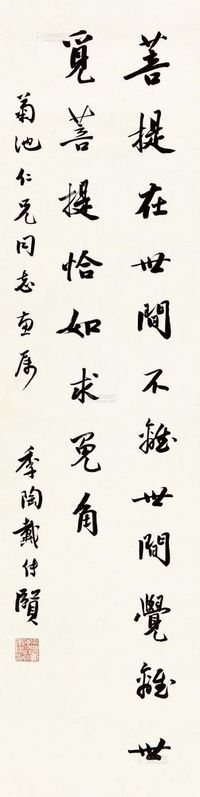 菩提在世間不離世間覺離世
覓菩提恰如求兔角
菊池仁兄同志惠属
季陶戴传賢